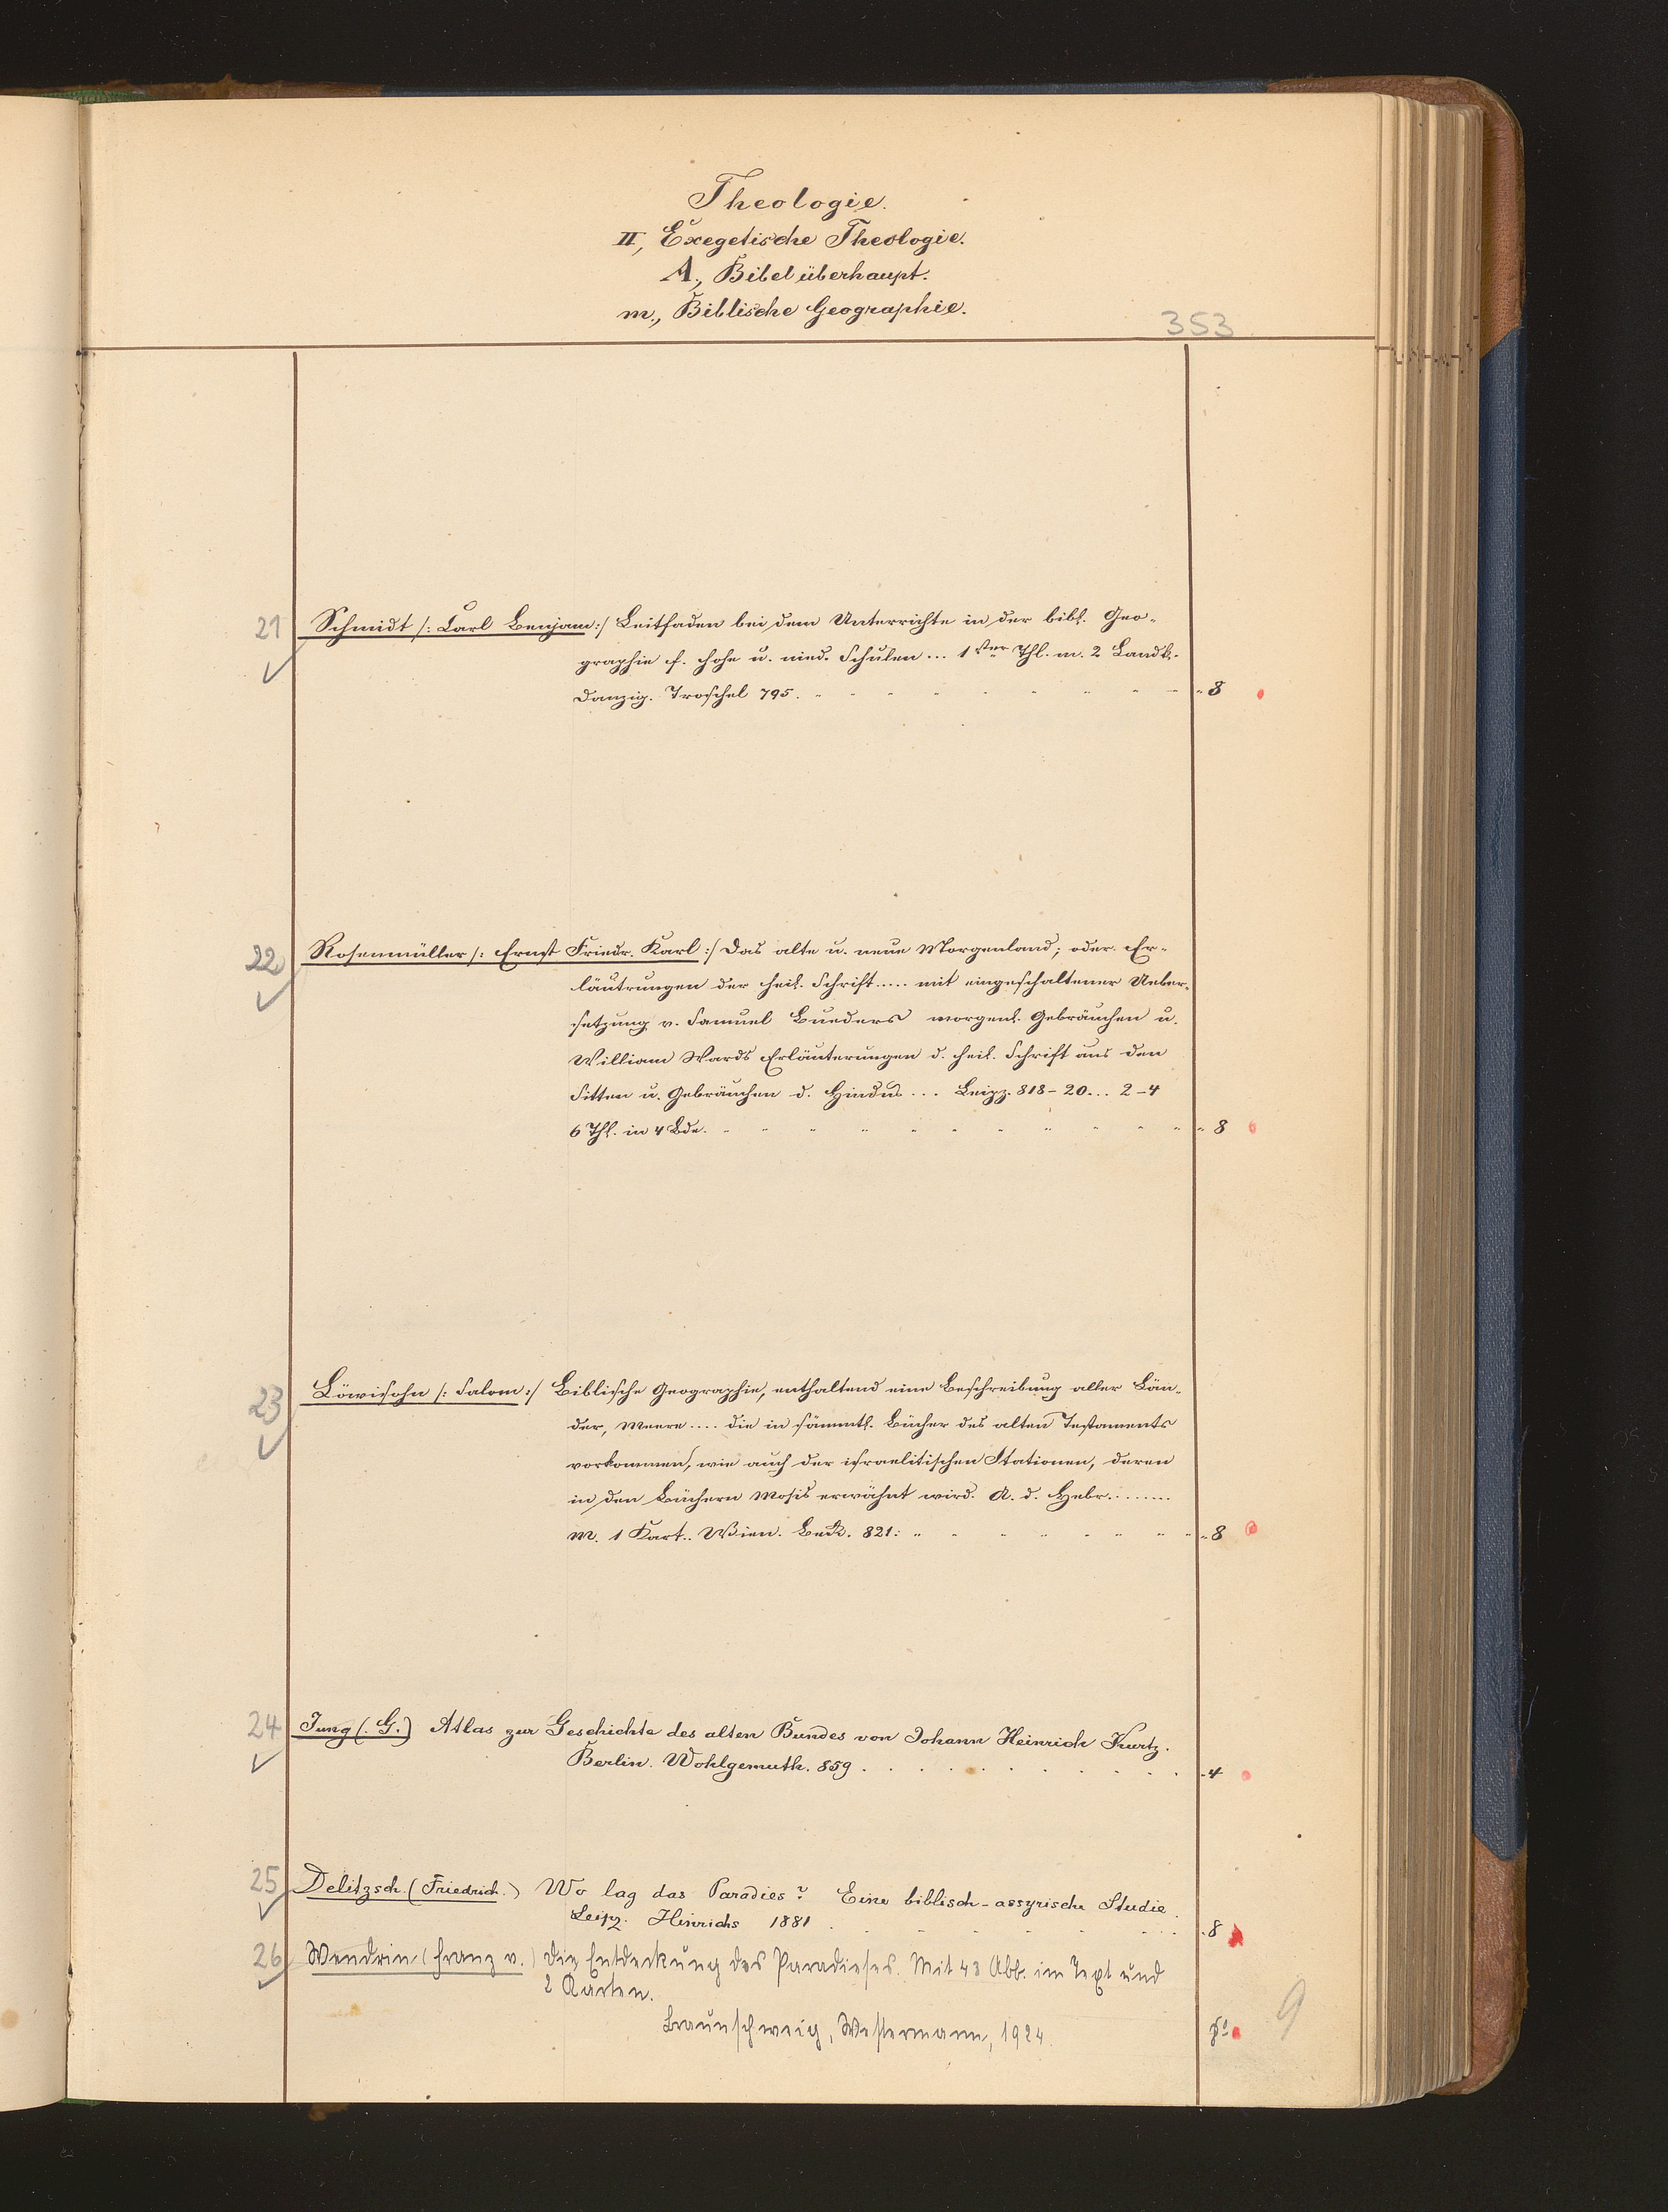 Theologie.
II, Exegetische Theologie.
A., Bibel überhaupt.
m., Biblische Geographie.
353
21 Schmidt /: Carl Benjam :/ Leitfaden bei dem Unterrichte in der bibl. Geo-
graphie f. hohe u. nied. Schulen ... 1ster Thl. m. 2 Landk.-
Danzig. Troschel 795. 8
22 Rosenmüller /: Ernst Friedr. Karl :/ Das alte u. neue Morgenland; oder Er-
läutrungen der heil. Schrift ..... mit eingeschaltener Ueber-
setzung v. Samuel Burders morgenl. Gebräuchen u.
William Wards Erläuterungen d. heil. Schrift aus den
Sitten u. Gebräuchen d. Hindus ... Leipz. 818-20... 2-4
6 Thl. in 4 Bde. 8
23 Löwisohn /: Salom :/ Biblische Geographie, enthaltend eine Beschreibung aller Län-
der, Meere .... die in sämmtl. Bücher des alten Testaments
vorkommen, wie auch der israelitischen Stationen, deren
in den Büchern Mosis erwähnt wird. A. d. Hebr. .......
m. 1 Kart.. Wien. Beck. 821: 8
24 Jung (. G.) Atlas zur Geschichte des alten Bundes von Johann Heinrich Kurtz.
Berlin. Wohlgemuth. 859 . 4
25 Delitzsch. (Friedrich.) Wo lag das Paradies? Eine biblisch-assyrische Studie.
Leipz. Hinrichs 1881 . 8
26 Wendrin (Franz v.) Die Entdeckung des Paradieses. Mit 43 Abb. im Text und
2 Karten.
Braunschweig, Westermann, 1924. 8º
9